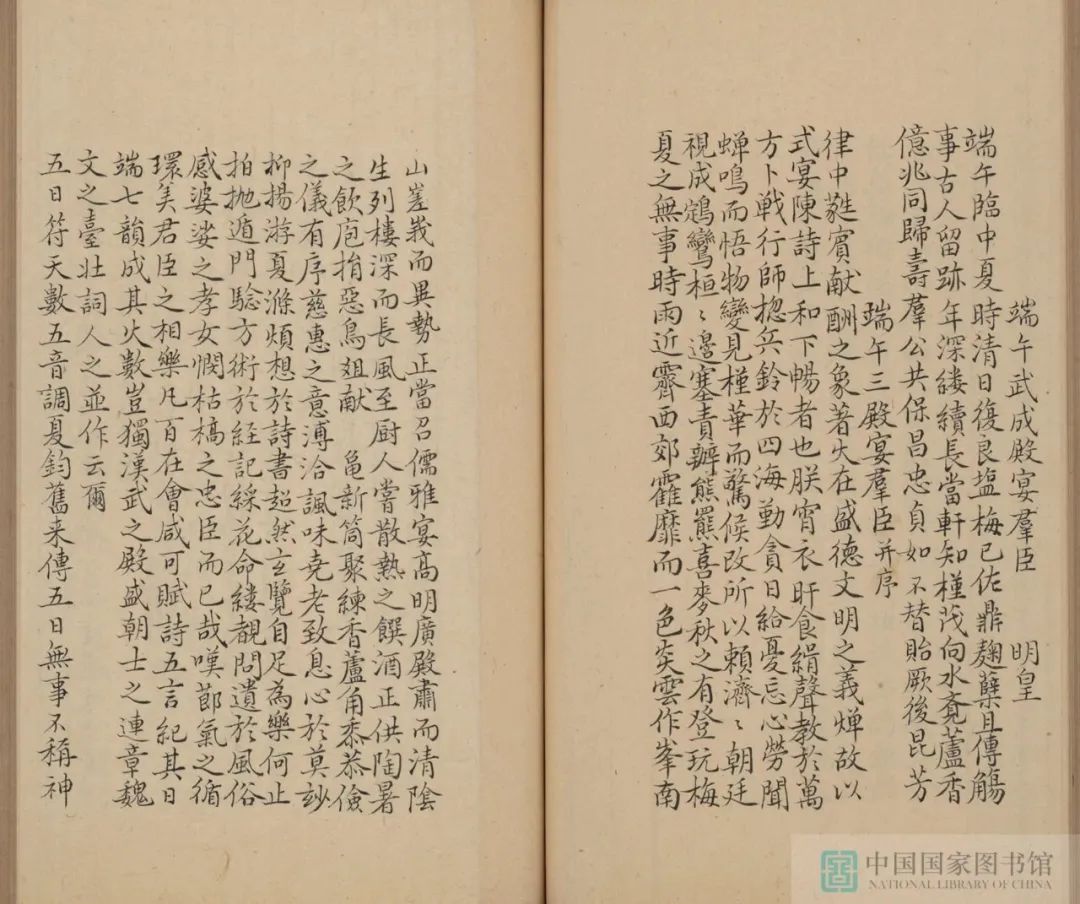 端午武成殿宴羣臣 明皇
端午臨中夏時清日復良塩梅已佐鼎麹蘖且傳觴
事古人留跡年深縷續長當軒知槿茂向水覔蘆香
億兆同歸壽羣公共保昌忠貞如不替貽厥後昆芳
端午三殿宴羣臣并序
律中蕤賓献酬之象著火在盛德文明之義燀故以
式宴陳詩上和下暢者也朕宵衣旰食緝聲教於萬
方卜戦行師揔兵鈴於四海勤貪日給憂忘心勞聞
蝉鳴而悟物變見槿華而驚候改所以頼濟〻朝廷
視成鵷鸞桓〻邉塞責辦熊羆喜麥秋之有登玩梅
夏之無事時雨近霽西郊靃靡而一色炎雲作峯南
山嵳峩而異勢正當召儒雅宴高明廣殿肅而清陰
生列樓深而長風至厨人嘗散熱之饌酒正供陶暑
之飲庖捐惡鳥俎献龜新筒聚練香蘆角黍恭儉
之儀有序慈惠之意溥洽諷味尭老致息心於莫妙
抑揚游夏滌煩想於詩書超然玄覽自足為樂何止
拍拋遁門驗方術於経記綵花命縷覩問遺於風俗
感婆娑之孝女憫枯槁之忠臣而已哉嘆節氣之循
環美君臣之相樂凡百在會咸可賦詩五言紀其日
端七韻成其火數豈獨漢武之殿盛朝士之連章魏
文之臺壮詞人之並作云爾
五日符天數五音調夏鈞舊来傳五日無事不稱神
中国国家图书馆
NATIONAL LIBRARY OF CHINA